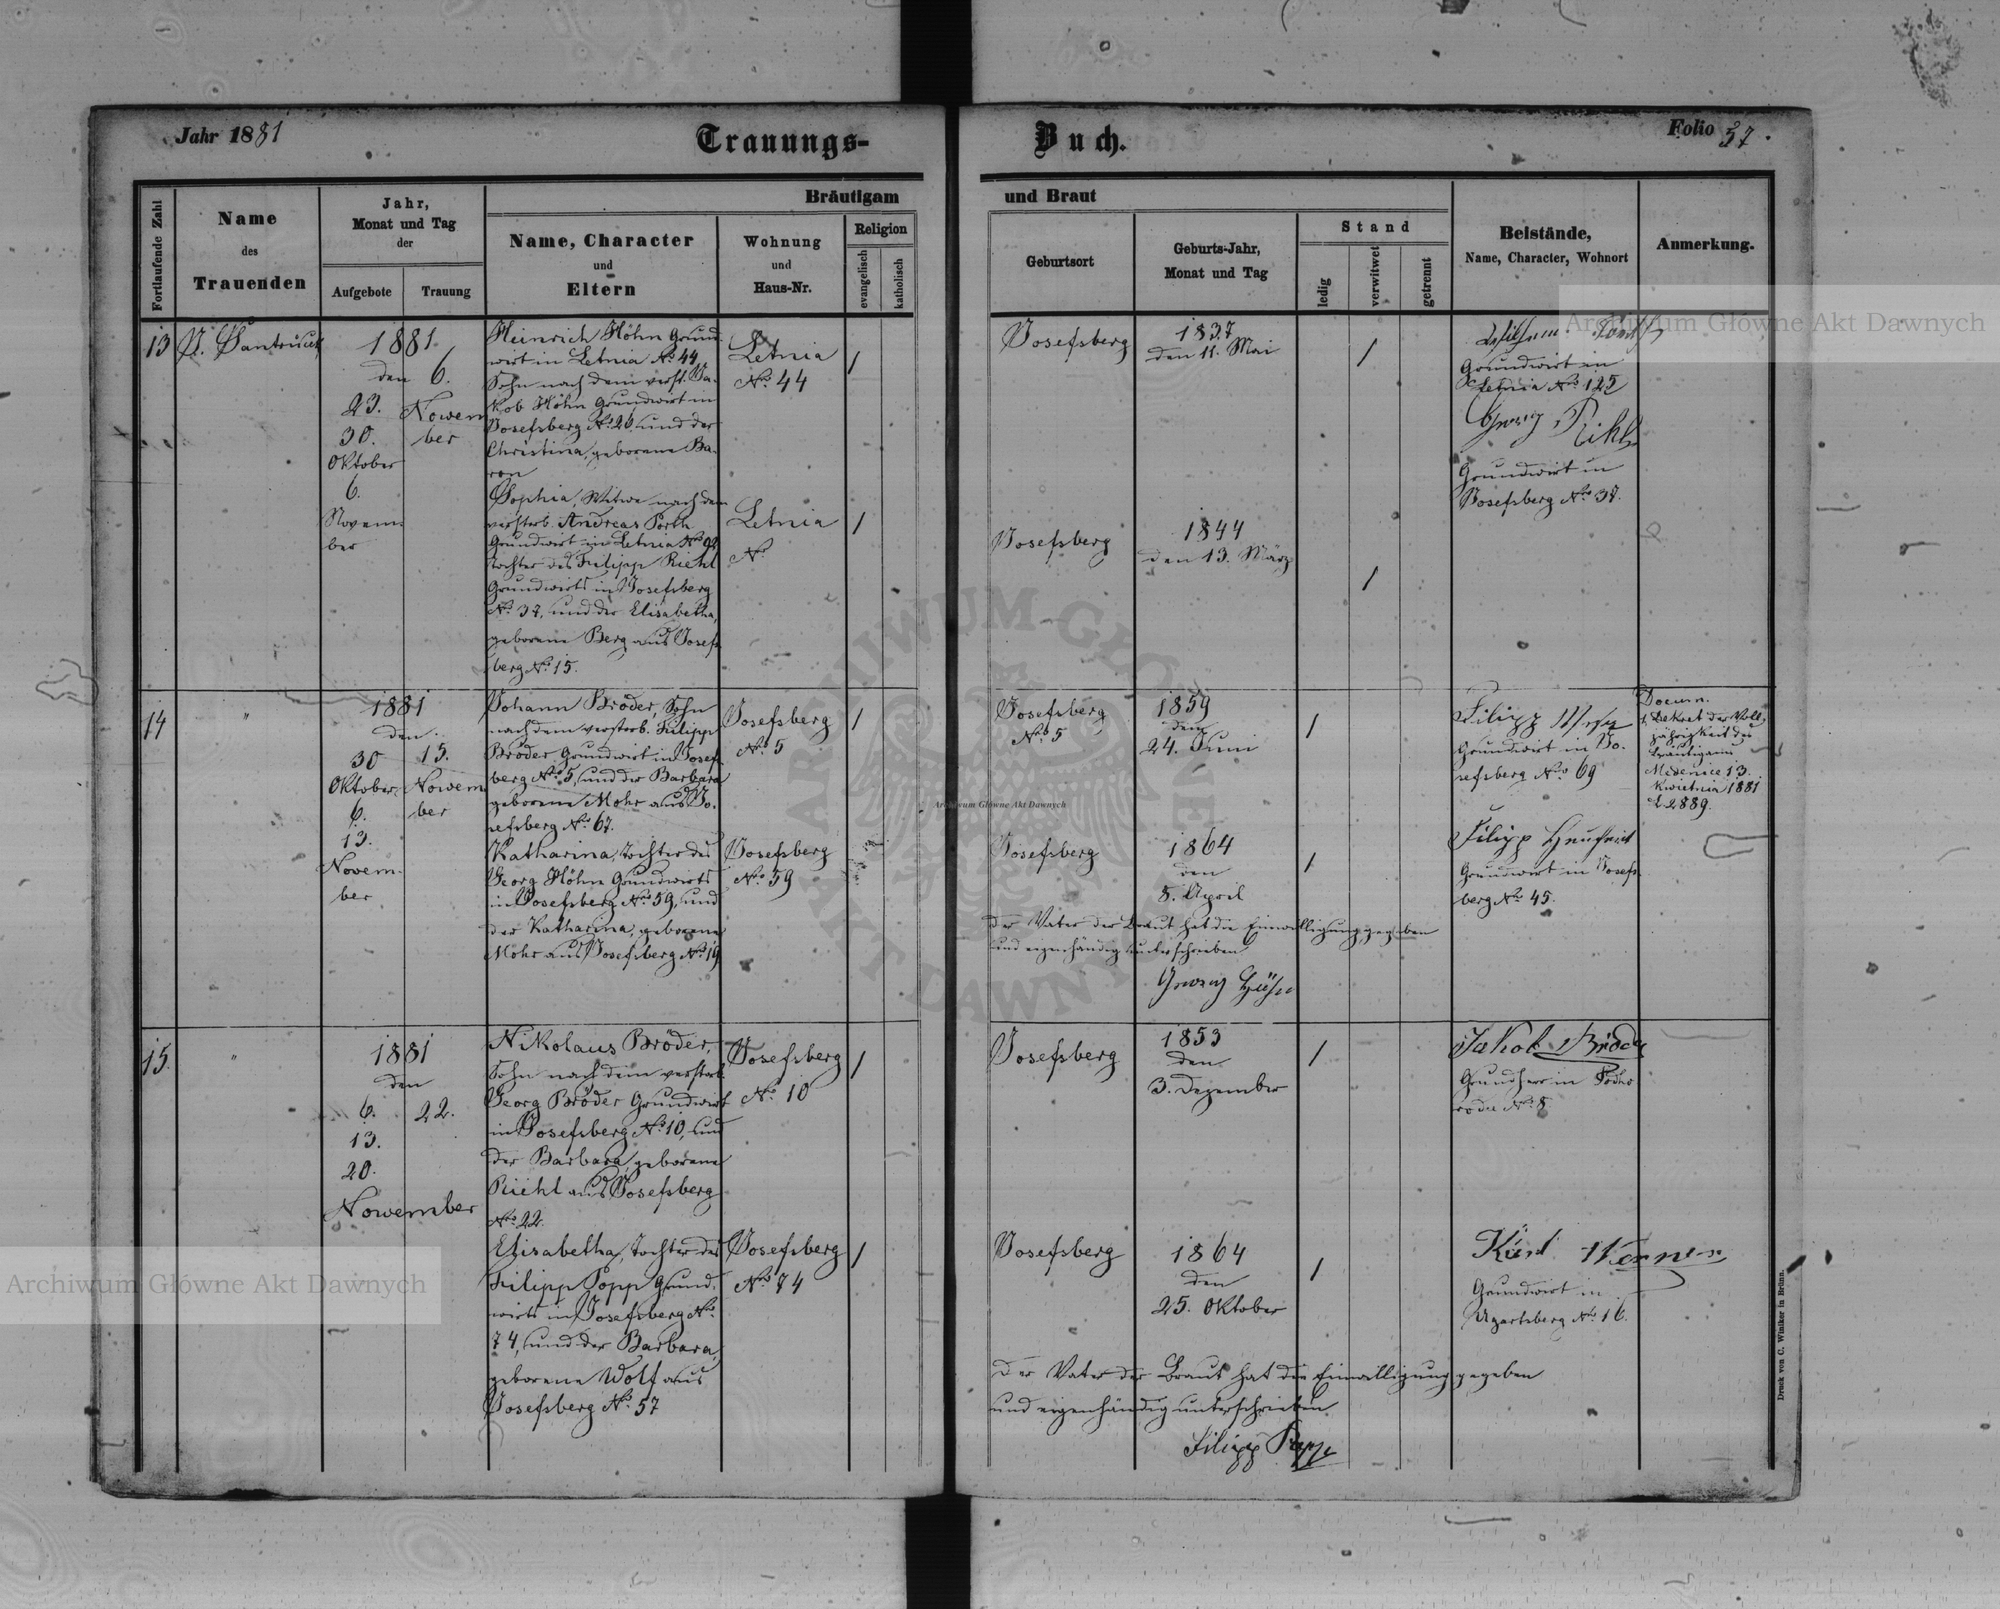 Jahr 1881
Trauungs-
Buch.
Folio 37.
Fortlaufende Zahl
Name
des
Trauenden
Jahr,
Monat und Tag
der
Aufgebote
Trauung
Bräutigam
Name, Character
und
Eltern
Wohnung
und
Haus-Nr.
Religion
evangelisch
katholisch
und Braut
Geburtsort
Geburts-Jahr,
Monat und Tag
Stand
ledig
verwitwet
getrennt
Beistände,
Name, Character, Wohnort
Anmerkung.
13
1881
den 6.
23.
30.
Oktober
6.
Novem-
ber
Nowem
ber
Heinrich Höhn Grund-
wirt in Letnia No 44,
Sohn nach dem verst. Ja-
kob Höhn Grundwirt in
Josefsberg No 26, und der
Christina, geborene Ba-
ron
Letnia
No 44
/
Josefsberg
1837
den 11. Mai
/
Grundwirt in
Letnia No 125
Georg Rihl
Grundwirt in
Josefsberg No 37.
Sophia, Witwe nach dem
verstorb. Andreas Porth
Grundwirt in Letnia No
Tochter des Filipp Riehl
Grundwirts in Josefsberg
No 37, und der Elisabetha,
geborene Berg aus Josefs
berg No 15.
Letnia
No
/
Josefsberg
1844
den 13. März
/
14
"
1881
den
30
Oktober
6.
13.
Novem-
ber
15.
Nowem
ber
Johann Bröder, Sohn
nach dem verstorb. Filipp
Bröder, Grundwirt in Josefs
berg No 5, und der Barbara
geborene Mohr aus Jo-
sefsberg No 67.
Josefsberg
No 5
/
Josefsberg
No 5
1859
den
24. Juni
/
Filipp
Grundwirt in Jo-
sefsberg No 69
Docum.
1, Dekret der Voll-
jährigkeit des
Bräutigams
Medenice 13.
Kwietnia 1881
L 2889.
Katharina, Tochter des
Georg Höhn Grundwirts
in Josefsberg No 59, und
der Katharina, geborene
Mohr aus Josefsberg No 19
Josefsberg
No 59
Josefsberg
1864
den
8. April
/
Filipp
Grundwirt in Josefs
berg No 45.
der Vater der Braut hat die Einwilligung gegeben
und eigenhändig unterschrieben
Georg Höhn
15.
"
1881
den
6.
13.
20.
22.
Nowember
Nikolaus Bröder,
Sohn nach dem verstorb.
Georg Bröder Grundwirt
in Josefsberg No 10, und
der Barbara, geborene
Riehl aus Josefsberg
No 22.
Josefsberg
No 10
/
Josefsberg
1853
den
3. Dezember
/
Jakob Bröder
Grundherr in
No 8
Elisabetha, Tochter des
Filipp Popp Grund-
wirts in Josefsberg No
74, und der Barbara,
geborene Wolf aus
Josefsberg No 57
Josefsberg
No 74
/
Josefsberg
1864
den
25. Oktober
/
Grundwirt in
Ugartsberg No 16.
der Vater der Braut hat die Einwilligung gegeben
und eigenhändig unterschrieben
Filipp Popp
Druck von C. Winiker in Brünn.
Archiwum Główne Akt Dawnych
Archiwum Główne Akt Dawnych
Archiwum Główne Akt Dawnych
ARCHIWUM GŁÓWNE
AKT DAWNYCH